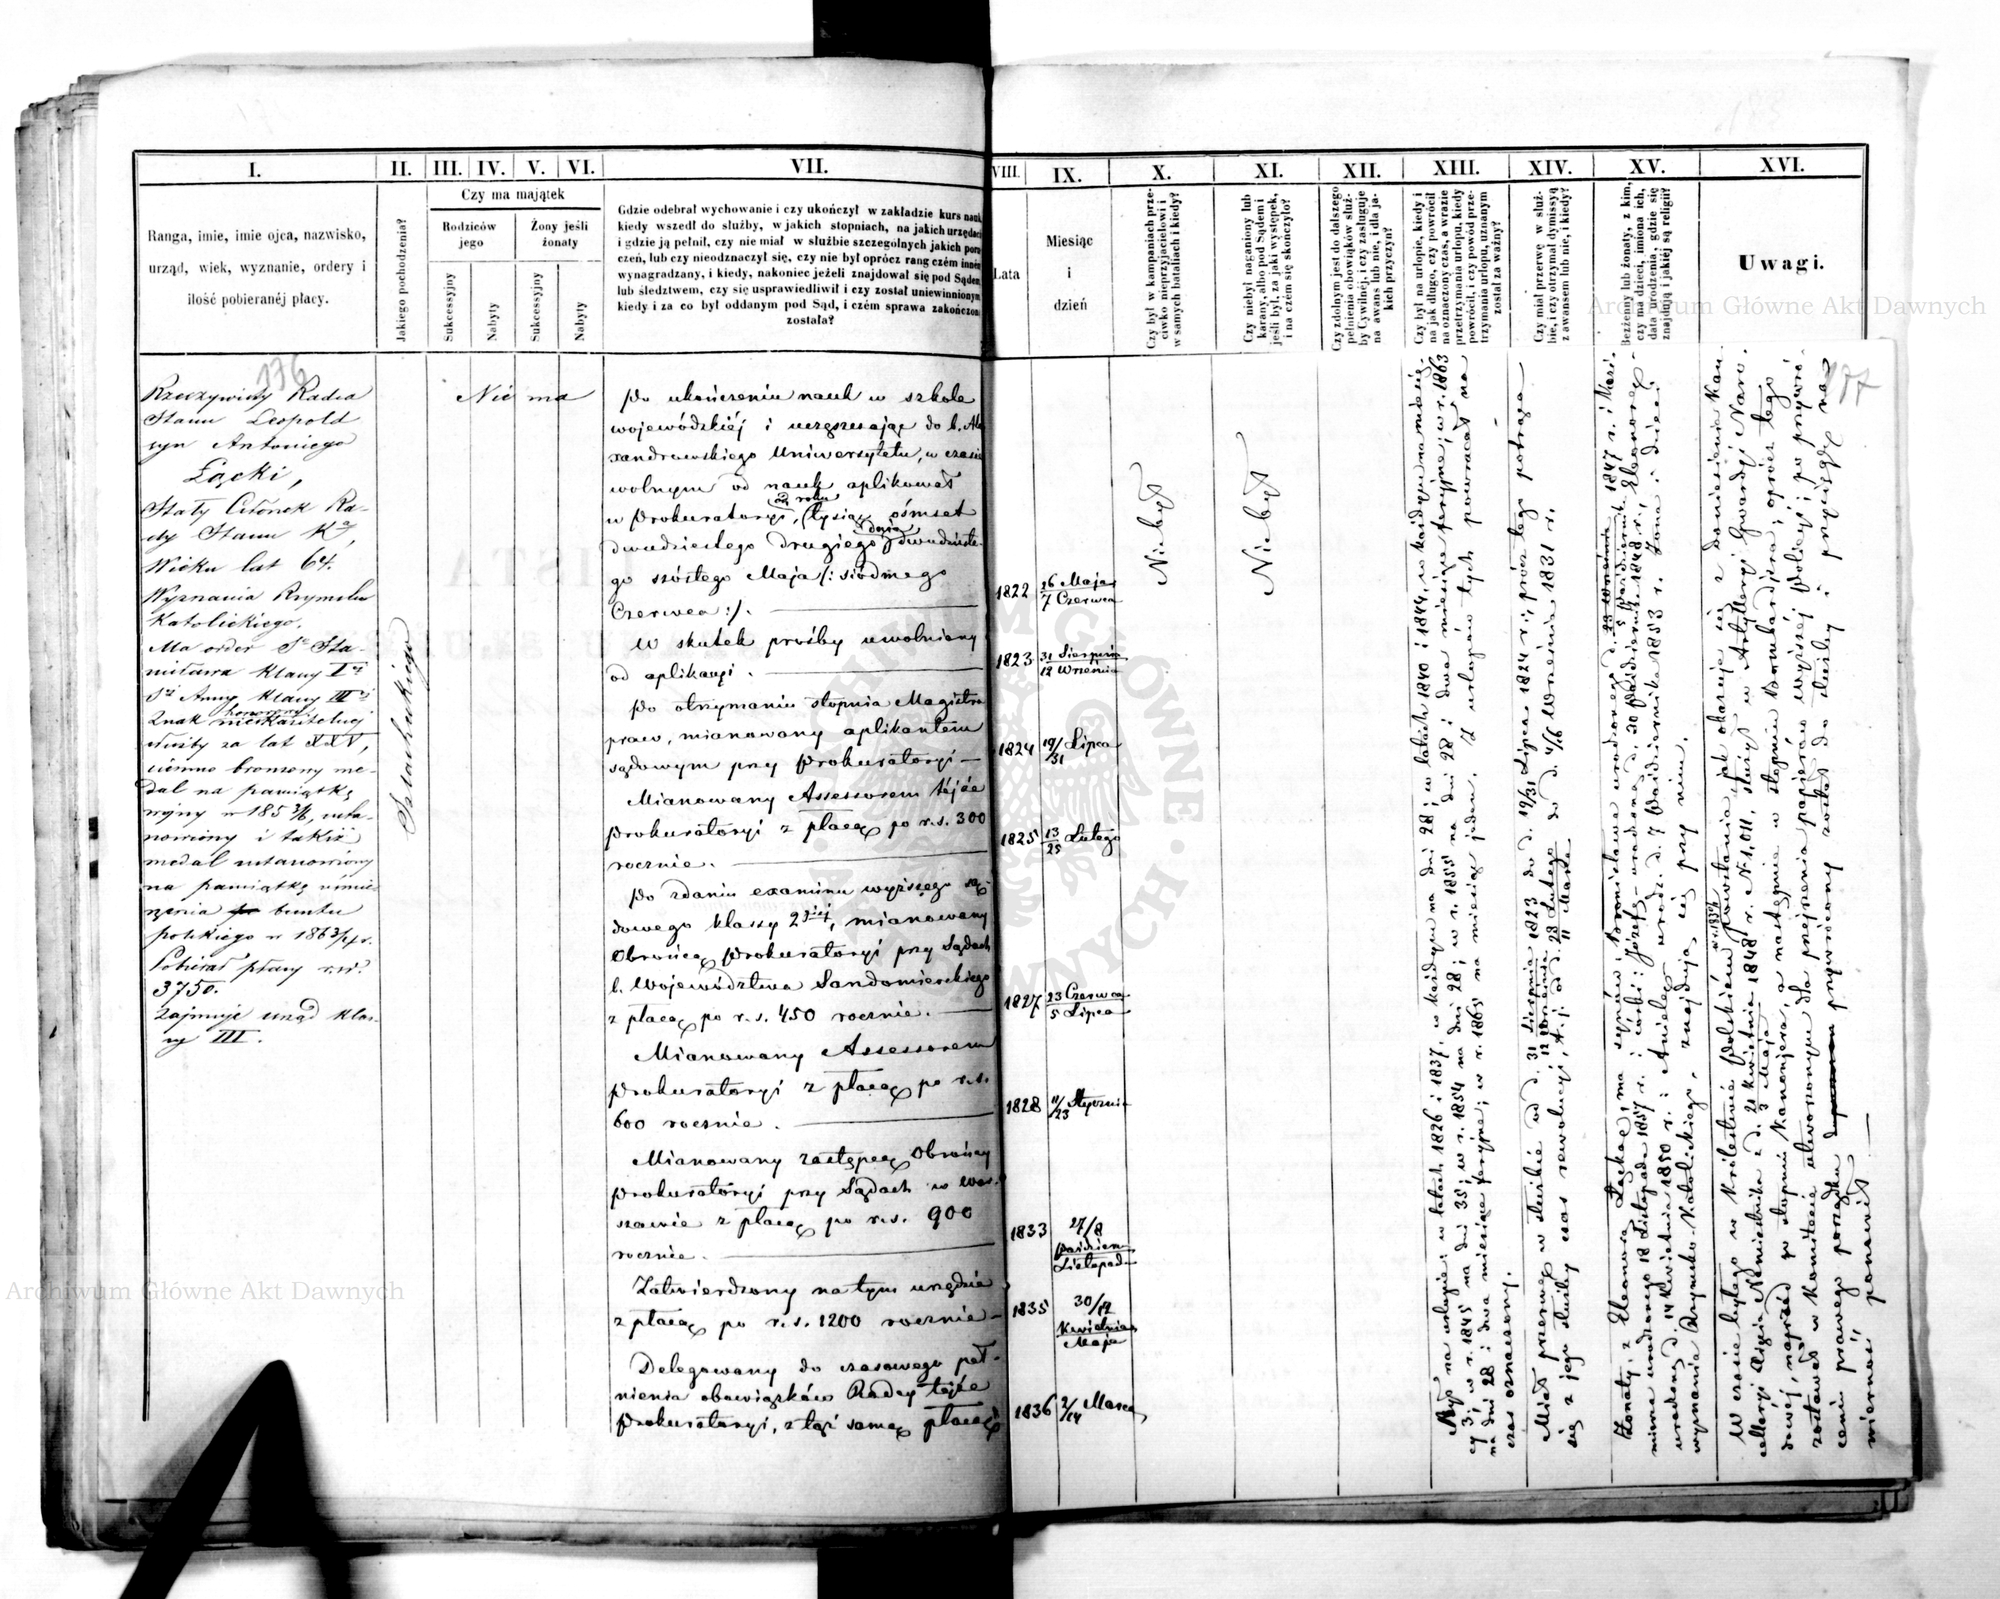 I.
Ranga, imie, imie ojca, nazwisko,
urząd, wiek, wyznanie, ordery i
ilość pobieranéj płacy.
II.
Jakiego pochodzenia?
III. IV. V. VI.
Czy ma majątek
Rodziców
jego
Żony jeśli
żonaty
Sukcessyjny
Nabyty
Sukcessyjny
Nabyty
VII.
Gdzie odebrał wychowanie i czy ukończył w zakładzie kurs nauk,
kiedy wszedł do służby, w jakich stopniach, na jakich urzędach
i gdzie ją pełnił, czy nie miał w służbie szczególnych jakich poru
czeń, lub czy nieodznaczył się, czy nie był oprócz rang czém inném
wynagradzany, i kiedy, nakoniec jeżeli znajdował się pod Sądem
lub śledztwem, czy się usprawiedliwił i czy został uniewinnionym
kiedy i za co był oddanym pod Sąd, i czém sprawa zakończoną
została?
VIII.
Lata
IX.
Miesiąc
i
dzień
X.
Czy był w kampaniach prze-
ciwko nieprzyjacielowi i
w samych bataliach i kiedy?
XI.
Czy niebył naganiony lub
karany, albo pod Sądem i
jeśli był, za jaki występek,
i na czém się skończyło?
XII.
Czy zdolnym jest do dalszego
pełnienia obowiązków służ-
by Cywilnéj, i czy zasługuje
na awans lub nie, i dla ja-
kich przyczyn?
XIII.
Czy był na urlopie, kiedy i
na jak długo, czy powrócił
na oznaczony czas, a w razie
przetrzymania urlopu, kiedy
powrócił, i czy powód prze-
trzymania urlopu, uznanym
został za ważny?
XIV.
Czy miał przerwę w służ-
bie, i czy otrzymał dymissyą
z awansem lub nie, i kiedy?
XV.
Bezżenny lub żonaty, z kim,
czy ma dzieci, imiona ich,
data urodzenia, gdzie się
znajdują i jakiéj są religii?
XVI.
Uwagi.
176
Rzeczywisty Radca
Stanu Leopold
syn Antoniego
Łącki,
Stały Członek Ra-
dy Stanu
Wieku lat 64.
Wyznania Rzymsko
Katolickiego.
Ma order Sgo Sta-
nisława klassy Iéj
Stéj Anny klassy IIIéj
Znak honorowy nieskazitelnéj
służby za lat XXV,
ciemno bronzowy me-
dal na pamiątkę
wojny w 1853/6, usta-
nowiony i takiż
medal ustanowiony
na pamiątkę uśmie-
rzenia buntu
polskiego w 1863/4 r.
Pobierał płacy r.s.
3750.
Zajmuje urząd klas-
sy III.
Szlacheckiego
Nie ma
Po ukończeniu nauk w szkole
wojewódzkiéj i uczęszczając do b. Ale
xandrowskiego Uniwersytetu, w czasie
wolnym od nauk aplikował
w Prokuratoryi, od roku (tysiąc ośmset
dwudziestego drugiego) dnia dwudzieste-
go szóstego Maja /: siódmego
Czerwca :/.
1822 26 Maja / 7 Czerwca
W skutek prośby uwolniony
od aplikacyi.
1823 31 Sierpnia / 12 Września
Po otrzymaniu stopnia Magistra
praw, mianowany aplikantem
sądowym przy Prokuratoryi
1824 19/31 Lipca
Mianowany Assessorem téjże
Prokuratoryi z płacą po r.s. 300
rocznie.
1825 13/25 Lutego
Po zdaniu examinu wyższego są-
dowego klassy 2giéj, mianowany
Obrońcą Prokuratoryi przy Sądach
b. Województwa Sandomierskiego
z płacą po r.s. 450 rocznie.
1827 23 Czerwca / 5 Lipca
Mianowany Assessorem
Prokuratoryi z płacą po r.s.
600 rocznie.
1828 11/23 Stycznia
Mianowany zastępcą Obrońcy
Prokuratoryi przy Sądach w War-
szawie z płacą po r.s. 900
rocznie.
1833 27/8 Październ. / Listopada
Zatwierdzony na tym urzędzie
z płacą po r.s. 1200 rocznie
1835 30/12 Kwietnia / Maja
Delegowany do czasowego peł-
nienia obowiązków Radcy téjże
Prokuratoryi, z tąż samą płacą
1836 2/14 Marca
Niebył
Niebył
Był na urlopie: w latach 1826 i 1837, w każdym na dni 28; w latach 1840 i 1844, w każdym na miesią-
cy 3; w r. 1845 na dni 35; w r. 1854 na dni 28; w r. 1855 na dni 28 i dwa miesiące feryjne; w r. 1863
na dni 28 i dwa miesiące feryjne; w r. 1865 na miesiąc jeden. Z urlopów tych powracał na
czas oznaczony.
Miał przerwę w służbie od d. 31 Sierpnia / 12 Września 1823 do d. 19/31 Lipca 1824 r.; prócz tego potrąca
się z jego służby czas rewolucyi, t. j. od d. 28 Lutego / 11 Marca do d. 4/16 Września 1831 r.
Żonaty z Eleonorą Łącką; ma synów: Bronisława urodzonego d. 23 Września / 5 Października 1847 r. i Kazi-
mierza urodzonego 18 Listopada 1857 r. i córki: Józefę urodzoną d. 20 Października 1848 r., Eleonorę
urodzoną d. 14 Kwietnia 1850 r. i Anielę urodz. d. 7 Października 1853 r. Żona i dzieci
wyznania Rzymsko-Katolickiego, znajdują się przy nim.
W czasie byłego w Królestwie Polskiém w r. 1830/1 powstania, jak okazuje się z doniesienia Kan-
cellaryi Xięcia Namiestnika z d. 21 Kwietnia / 3 Maja 1848 r. № 1,011, służył w Artylleryi Gwardyi Naro-
dowéj, naprzód w stopniu Kanonjera, a następnie w stopniu Bombardjera; oprócz tego
zostawał w Komitecie utworzonym dla przejrzenia papierów wyższéj Policyi; po przywró-
ceniu prawego porządku przywrócony został do służby i przysięgę na
wierność ponowił.
177
Archiwum Główne Akt Dawnych
Archiwum Główne Akt Dawnych
ARCHIWUM GŁÓWNE AKT DAWNYCH